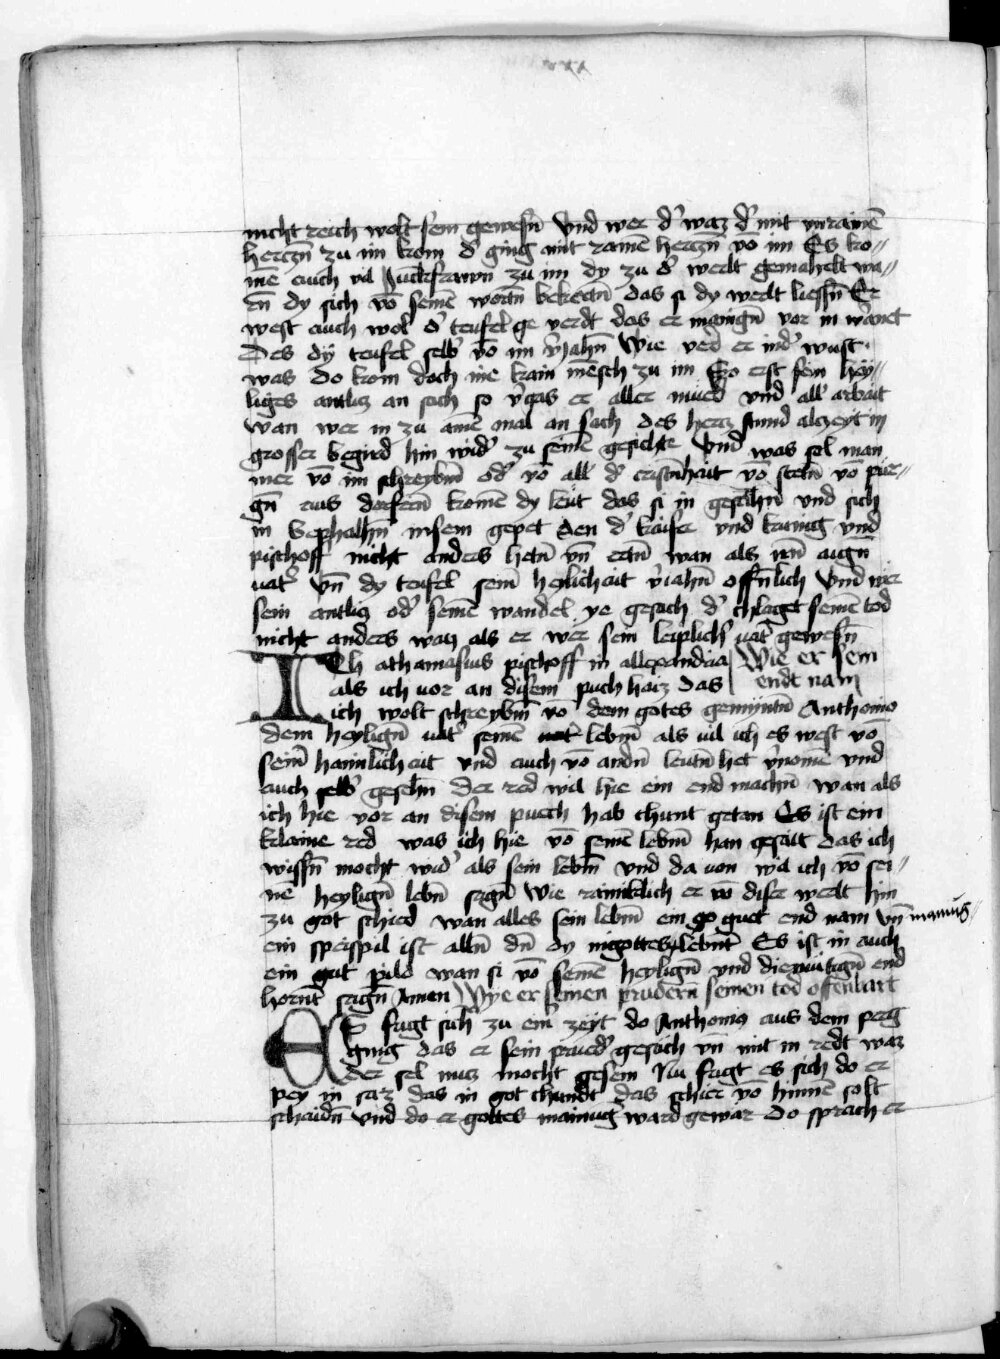 nicht reich wolt sein gewesn̄ Vnd wer d' waz d' mit vnrainē
herczn̄ zu im kom d' ging mit rainē herczn̄ vō im Es ko=
mē auch vil Junckfrawn zu im dy zu d' werlt gemahelt wa=
rn̄ dy sich vō seinē wortn̄ bekertn̄ das si dy werlt liessn̄ Er
west auch wol d' teufel ge verdt das er manign̄ vor in warnet
Des dy teufel selb' vō im v'jahn̄ Wie ver er ind' wust
was do kom doch nie kain mēsch zu im So erst sein hey=
liges antlicz an sach so v'gas er aller mued vnd all' arbait
wan wer in zu ainē mal an sach des hercz stund alczeyt in
grosser begird hin wid' zu seinē gesicht Vnd was sol man
mer vō im schreybn̄ od' vō all' d' cristn̄hait vō stetn̄ vō pur=
gn̄ aus dorfern̄ komē dy leut das si in gesehn̄ vnd sich
in bephalhn̄ in sein gepet den d' kaiser vnd kunig vnd
pischoff nicht anders hetn̄ vn̄ ertn̄ wan als irn̄ aign̄
uat' Vn̄ dy teufel sein̄ heylichait v'jahn̄ offn̄lich Vnd wer
sein antlicz od' seinē wandel ye gesach d' chlaget seinē tod
nicht anders wan als er wer sein leiplich' uat' gewesn̄
Ich athanasius pischoff in allexandria Wie er sein
als ich vor an disem puch haiz das endt nam
ich wolt schreybn̄ vō dem gotes gemyntn̄ Anthonio
dem heylign̄ uat' seinē lebn̄ als vil ich es west vō
sein̄ haimlichait vnd auch vō andn̄ leutn̄ het v'nomē vnd
auch selb' gesehn̄ der red wil hie ein end machn̄ wan als
ich hie vor an disem puech hab chunt getan Es ist ein
klaine red was ich hie vō seinē lebn̄ han gesait das ich
wissn̄ mocht wid' als sein lebn̄ vnd da von wil ich vō sei=
nē heylign̄ lebn̄ sagn̄ Wie rainiklich er vō diser werlt hin
zu got schied wan alles sein lebn̄ ein so guet end nam vn̄ manūg
ein peispil ist alln̄ dn̄ dy in gottes lebnt Es ist in auch
ein gut pild wan si vō seinē heylign̄ vnd diemutign̄ end
hornt sagn̄ Amen Wye er seinen prudern̄ seinen tod offenbart
Es fugt sich zu ein' zeyt do Anthonio aus dem perg
ging das er sein prued' gesach vn̄ mit in redt waz
der sel nucz mocht gesein Nu fugt es sich do er
pey in saz das in got chundt das schier vō hinnen solt
schaidn̄ Vnd do er gottes mainūg ward gewar Do sprach er